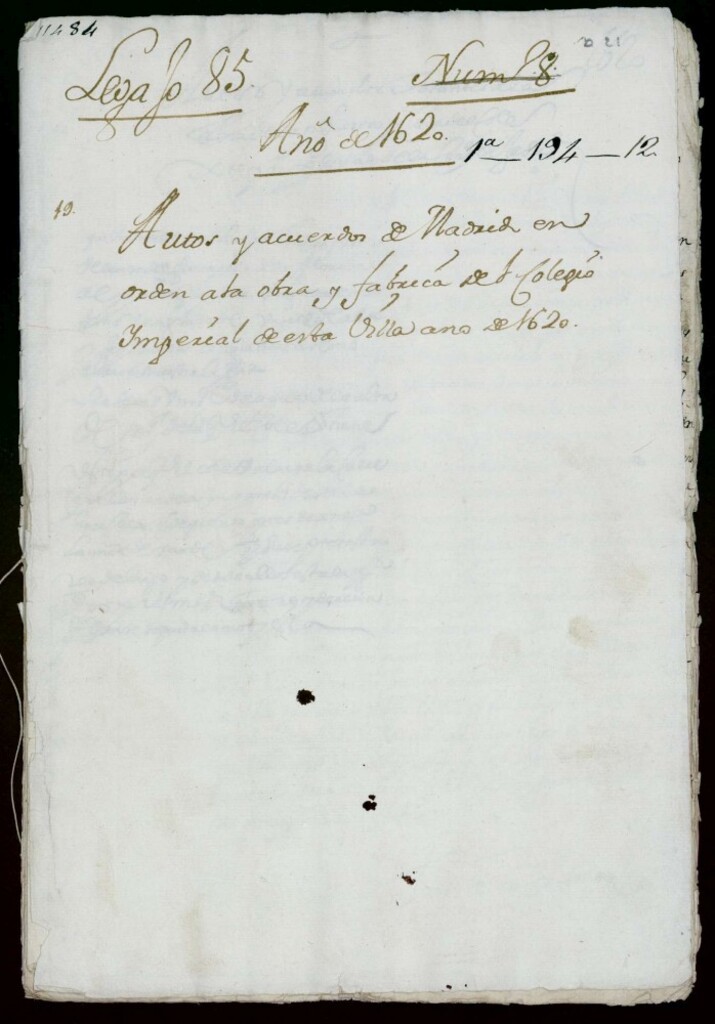 11484
Legajo 85 Num 28.
Año de 1620.
1ª — 194 — 12
19.
Autos y acuerdos de Madrid en
orden a la obra, y fabrica del Colegio
Imperial de esta Villa ano de 1620.